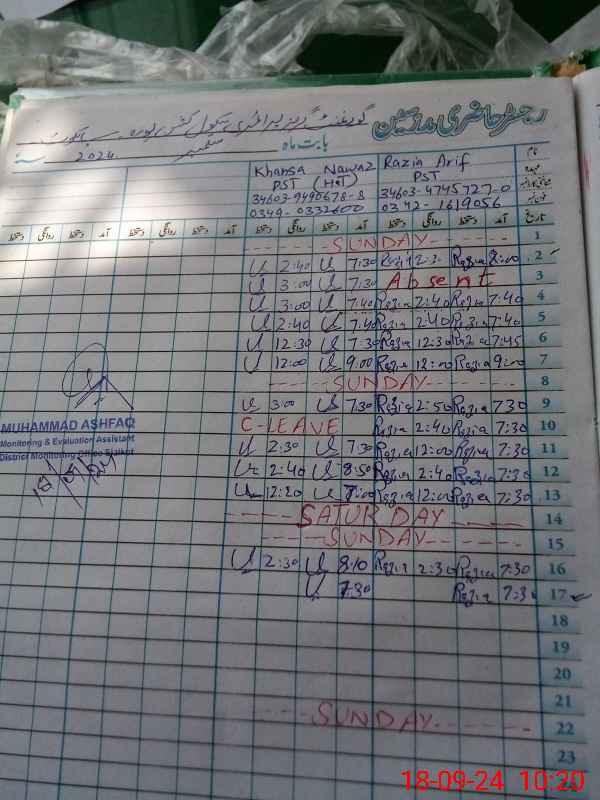 رجسٹر حاضری مدرسین
گورنمنٹ گرلز پرائمری سکول
بابت ماه ستمبر 2024 سنہ
Khansa Nawaz Razia Arif
PST (HT) PST
34603-9490678-8 34603-4745727-0
0349-0332600 0342-1619056
نام
تاریخ آمد دستخط روانگی دستخط آمد دستخط روانگی دستخط آمد دستخط روانگی دستخط
1 SUNDAY
2 8:00 Razia 7:30 2:40
3 Absent 7:30 3:00
4 7:40 Razia 2:40 Razia 7:40 3:00
5 7:40 Razia 2:40 Razia 7:40 2:40
6 7:45 Razia 12:30 Razia 7:30 12:30
7 9:00 Razia 12:00 Razia 9:00 12:00
8 SUNDAY
9 7:30 Razia 2:50 Razia 7:30 3:00
10 7:30 Razia 2:40 Razia C-LEAVE
11 7:30 Razia 12:00 Razia 7:30 2:30
12 7:30 Razia 2:40 Razia 8:50 2:40
13 7:30 Razia 12:00 Razia 7:00 12:20
14 SATURDAY
15 SUNDAY
16 7:30 Razia 2:30 Razia 8:10 2:30
17 7:30 Razia 7:30
18
19
20
21
22 SUNDAY
23
MUHAMMAD ASHFAQ
Monitoring & Evaluation Assistant
District Monitoring Office Sialkot
18-09-24 10:20